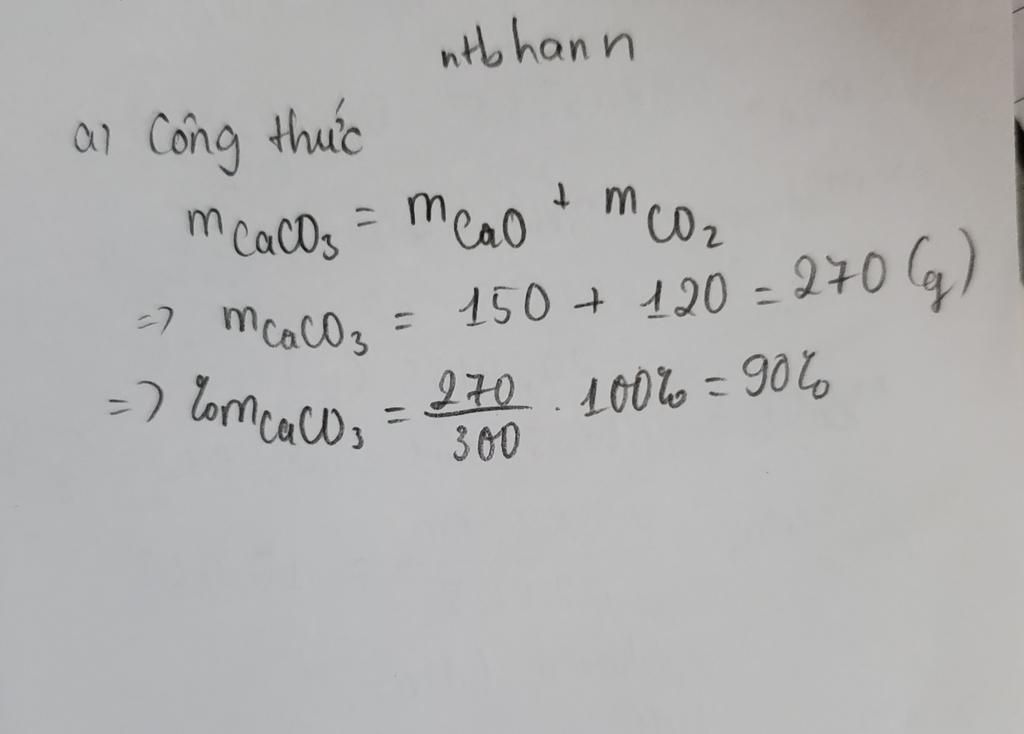 ntbhann
a) Công thức
mCaCO₃ = mCaO + mCO₂
=> mCaCO₃ = 150 + 120 = 270 (g)
=> %mCaCO₃ = 270/300 . 100% = 90%